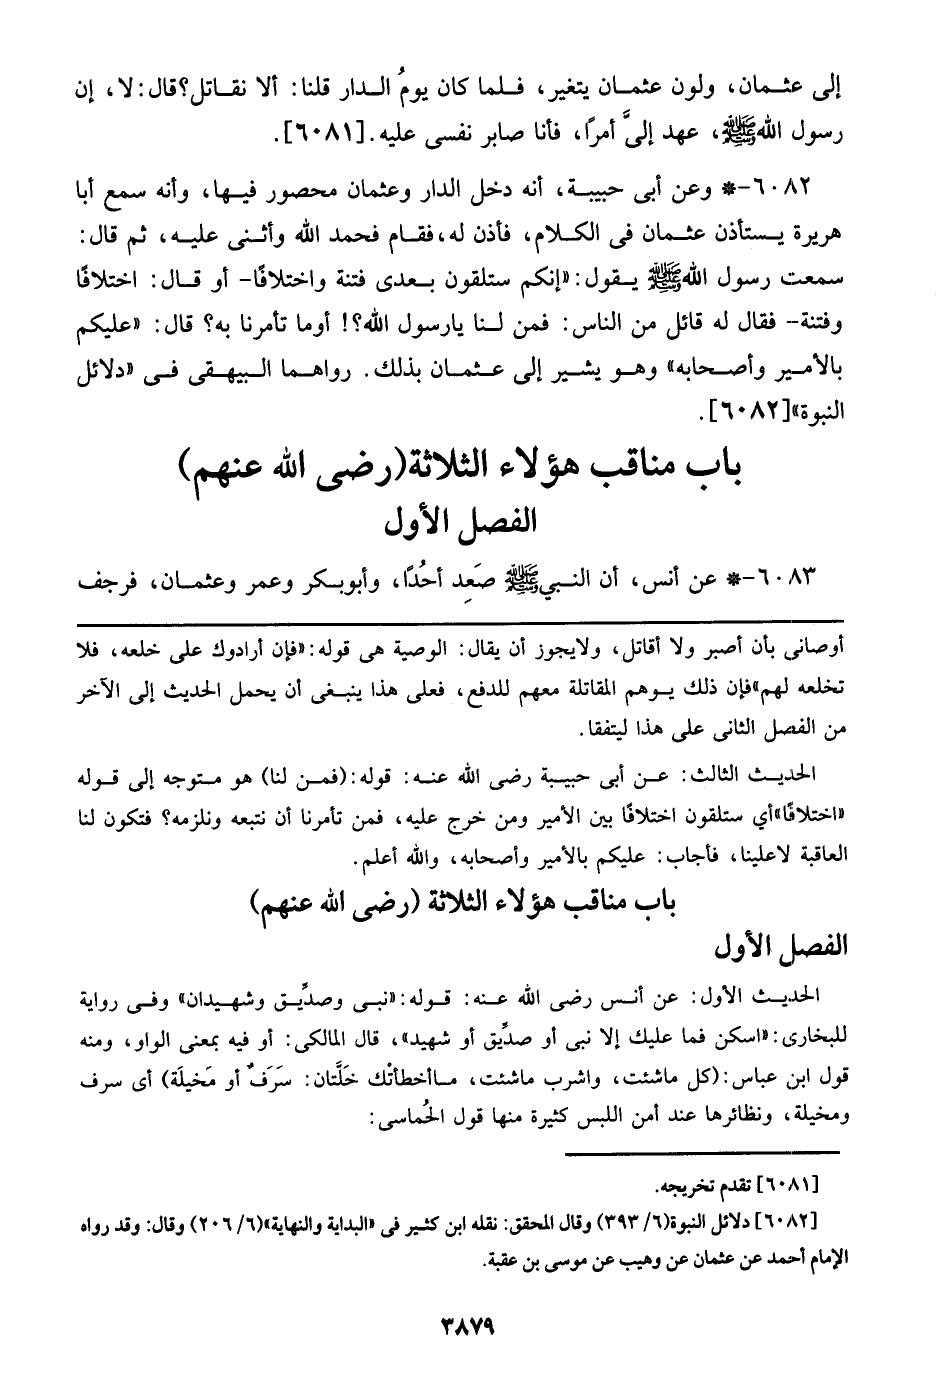 إلى عثـمان، ولون عثمـان يتغير، فـلما كان يومُ الـدار قلنا: ألا نقـاتل؟قال:لا، إن
رسول اللهﷺ، عهد إلىَّ أمرًا، فأنا صابر نفسى عليه.[٦٠٨١].
٦٠٨٢-* وعن أبى حبيبـة، أنه دخل الدار وعثمان محصور فيـها، وأنه سمع أبا
هريرة يـستأذن عثـمان فى الكـلام، فأذن له،فقـام فحمد الله وأثـنى عليـه، ثم قال:
سمعت رسول اللهﷺ يـقول:«إنكم ستلقون بـعدى فتنة واختلافًا- أو قـال: اختلافًا
وفتنة- فقال له قائل من الناس: فمن لنـا يارسول الله؟! أوما تأمرنا به؟ قال: «عليكم
بالأمـير وأصـحابه» وهـو يشـير إلى عـثمـان بذلك. رواهـما الـبيهـقى فـى «دلائل
النبوة»[٦٠٨٢].
باب مناقب هؤلاء الثلاثة(رضى الله عنهم)
الفصل الأول
٦٠٨٣-* عن أنس، أن النـبيﷺ صَعِد أحُدًا، وأبوبـكر وعمر وعثمـان، فرجف
أوصانى بأن أصبر ولا أقاتل، ولايجوز أن يقال: الوصية هى قوله:«فإن أرادوك على خلعه، فلا
تخلعه لهم»فإن ذلك يـوهم المقاتلة معهم للدفع، فعلى هذا ينبغى أن يحمل الحديث إلى الآخر
من الفصل الثانى على هذا ليتفقا.
الحديـث الثالث: عـن أبى حبيبة رضى الله عنـه: قوله:(فمـن لنا) هو متـوجه إلى قـوله
«اختلافًا»أي ستلقون اختلافًا بين الأمير ومن خرج عليه، فمن تأمرنا أن نتبعه ونلزمه؟ فتكون لنا
العاقبة لاعلينا، فأجاب: عليكم بالأمير وأصحابه، والله أعلم.
باب مناقب هؤلاء الثلاثة (رضى الله عنهم)
الفصل الأول
الحديـث الأول: عن أنس رضى الله عـنه: قـوله:«نبـى وصدِّيـق وشهـيدان» وفـى رواية
للبخارى:«اسكن فما عليك إلا نبى أو صدِّيق أو شهيد»، قال المالكى: أو فيه بمعنى الواو، ومنه
قول ابن عباس:(كل ماشئت، واشرب ماشئت، مـاأخطأتْك خَلَّتان: سَرَفٌ أو مَخيلَة) أى سرف
ومخيلة، ونظائرها عند أمن اللبس كثيرة منها قول الحُماسى:
[٦٠٨١] تقدم تخريجه.
[٦٠٨٢] دلائل النبوة(٦/ ٣٩٣) وقال المحقق: نقله ابن كثير فى «البداية والنهاية»(٦/ ٢٠٦) وقال: وقد رواه
الإمام أحمد عن عثمان عن وهيب عن موسى بن عقبة.
٣٨٧٩